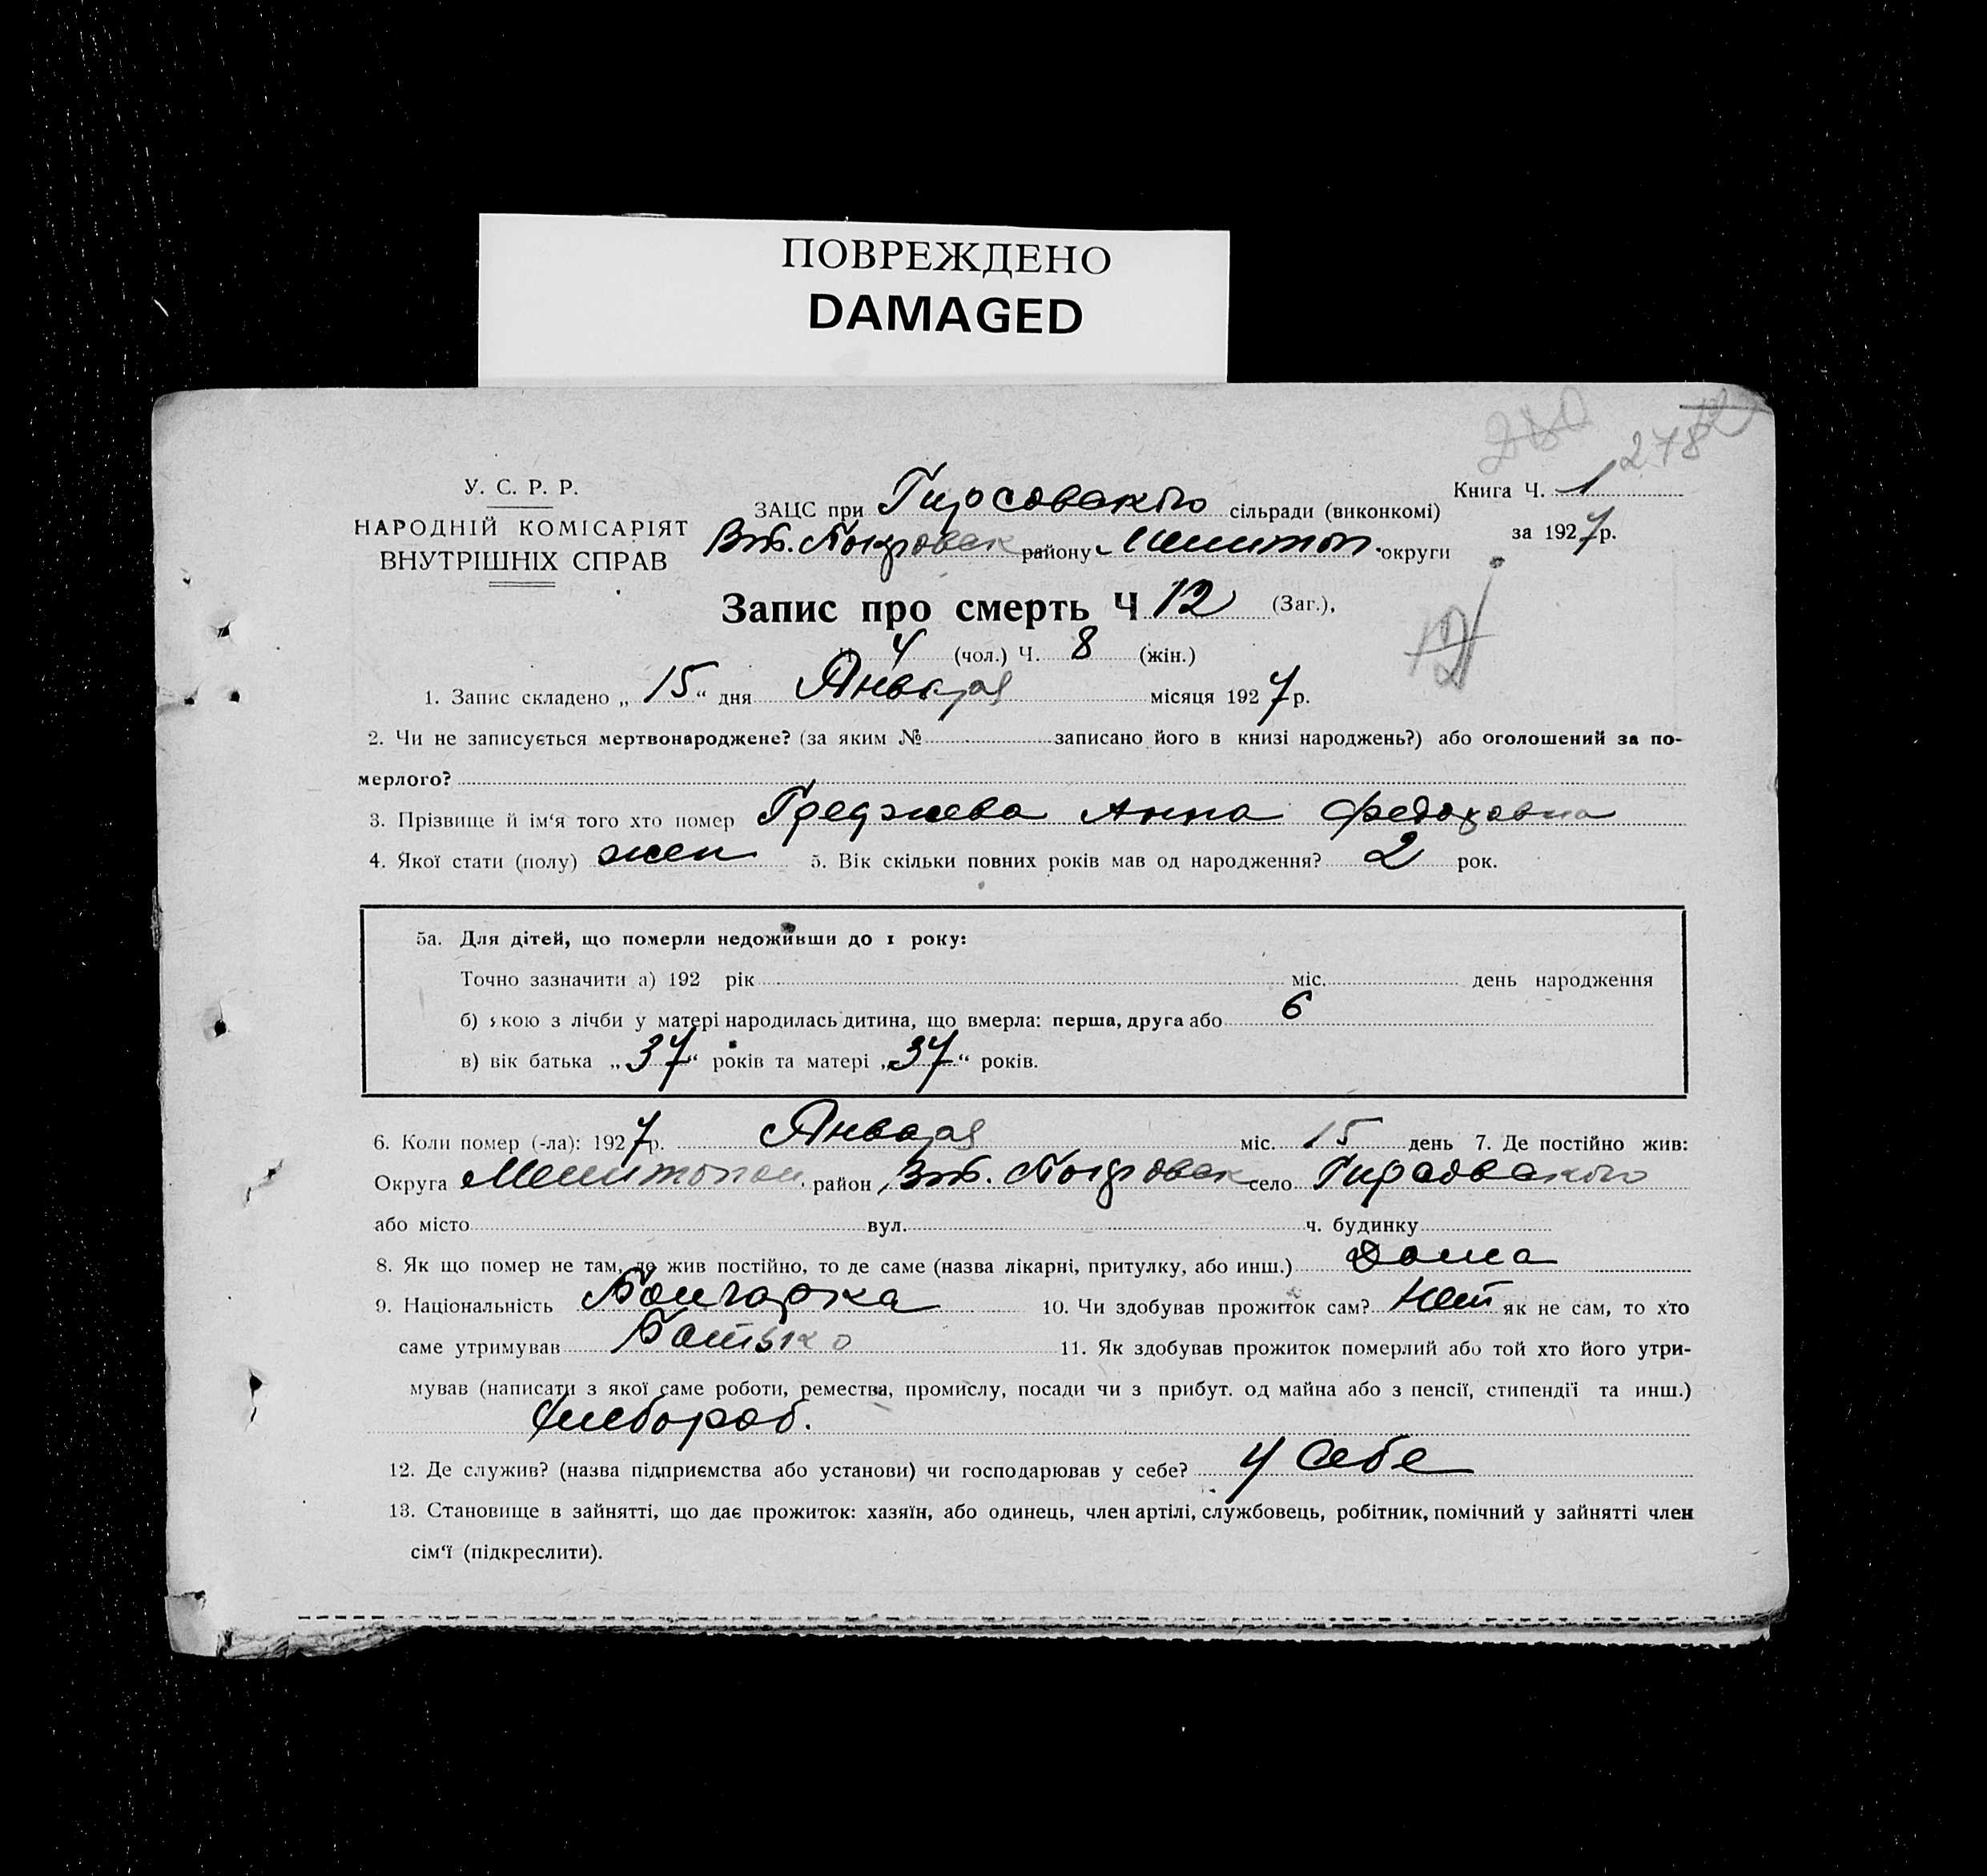 ПОВРЕЖДЕНО
DAMAGED
278
У. С. Р. Р.
НАРОДНІЙ КОМІСАРІЯТ
ВНУТРІШНІХ СПРАВ
ЗАЦС при Гирсовского сільради (виконкомі)
Вт. Покровск району Мелитоп. округи
Книга Ч. 1
за 1927 р.
Запис про смерть Ч 12 (Заг.),
4 (чол.) Ч. 8 (жін.)
1. Запис складено „ 15 “ дня Января місяця 1927 р.
2. Чи не записується мертвонароджене? (за яким № записано його в книзі народжень?) або оголошений за по-
мерлого?
3. Прізвище й ім‘я того хто помер Греджева Анна Федоровна
4. Якої стати (полу) жен 5. Вік скільки повних років мав од народження? 2 рок.
5а. Для дітей, що померли недоживши до 1 року:
Точно зазначити а) 192 рік міс. день народження
б) якою з лічби у матері народилась дитина, що вмерла: перша, друга або 6
в) вік батька „ 37 “ років та матері „ 37 “ років.
6. Коли помер (-ла): 1927 р. Января міс. 15 день 7. Де постійно жив:
Округа Мелитопол. район Вт. Покровск село Гирсовского
або місто вул. ч. будинку
8. Як що помер не там, де жив постійно, то де саме (назва лікарні, притулку, або инш.) Дома
9. Національність Болгарка 10. Чи здобував прожиток сам? Нет як не сам, то хто
саме утримував Батько 11. Як здобував прожиток померлий або той хто його утри-
мував (написати з якої саме роботи, ремества, промислу, посади чи з прибут. од майна або з пенсії, стипендії та инш.)
Хлебороб.
12. Де служив? (назва підприємства або установи) чи господарював у себе? У себе
13. Становище в зайнятті, що дає прожиток: хазяїн, або одинець, член артілі, службовець, робітник, помічний у зайнятті член
сім‘ї (підкреслити).